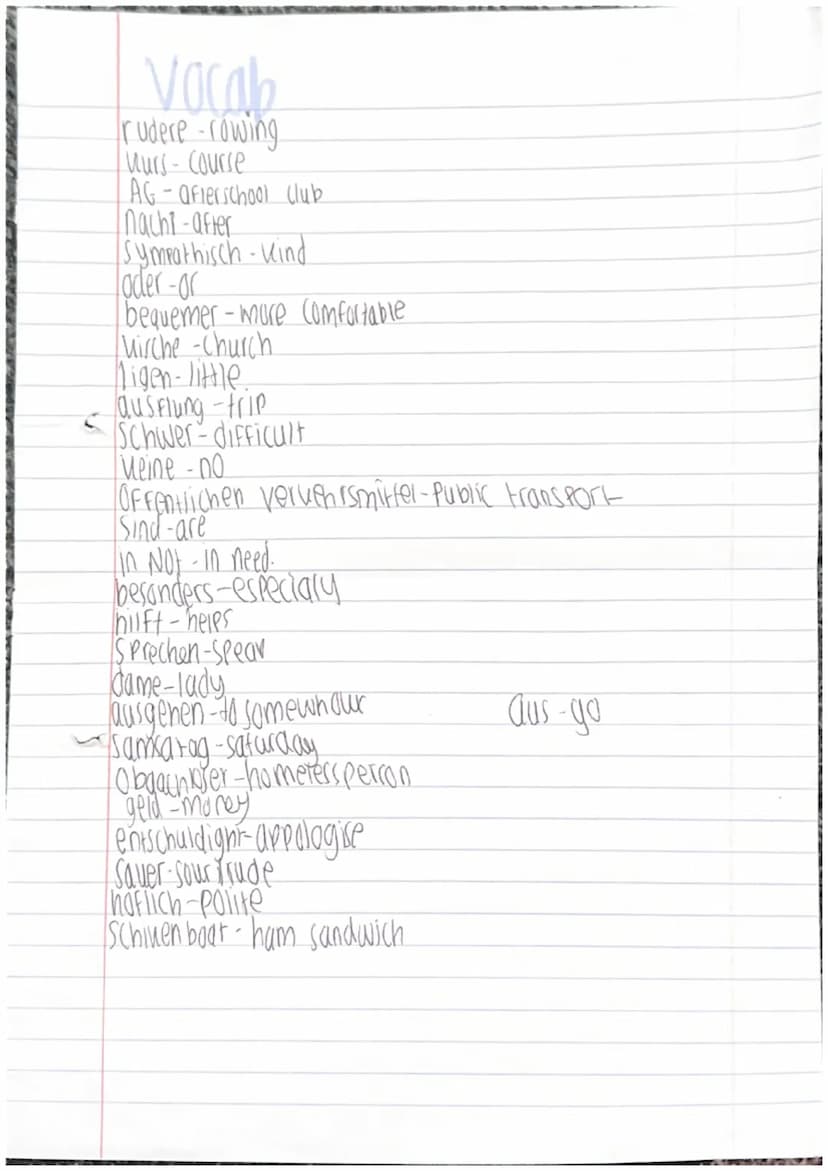 Vocab
rudere - rowing
kurs - course
AG - afterschool club
nacht - after
sympathisch - kind
oder - or
bequemer - more comfortable
kirche - church
ligen - little
ausflung - trip
schwer - difficult
keine - no
öffentlichen verkehrsmittel - public transport
sind - are
in Not - in need.
besonders - especialy
hilft - helps
sprechen - speak
dame - lady
ausgehen - to somewhour aus - go
samstag - saturday
obdachloser - homeless person
geld - money
entschuldight - appologise
sauer - sour rude
hoflich - polite
ham sandwich